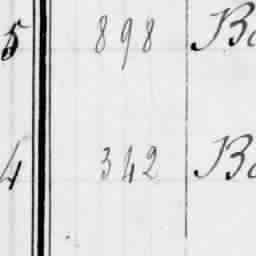 5 898 Bo
4 342 Bo